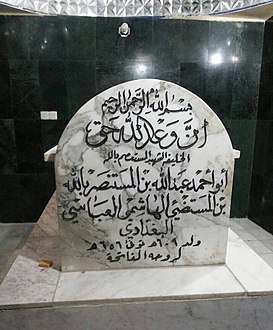 بسم الله الرحمن الرحيم
إن وعد الله حق
الخليفة الشهيد المستعصم بالله
أبو أحمد عبدالله بن المستنصر بالله
بن المستضيء الهاشمي العباسي
البغدادي
ولد ٦٠٩هـ توفي ٦٥٦هـ
لروحه الفاتحة